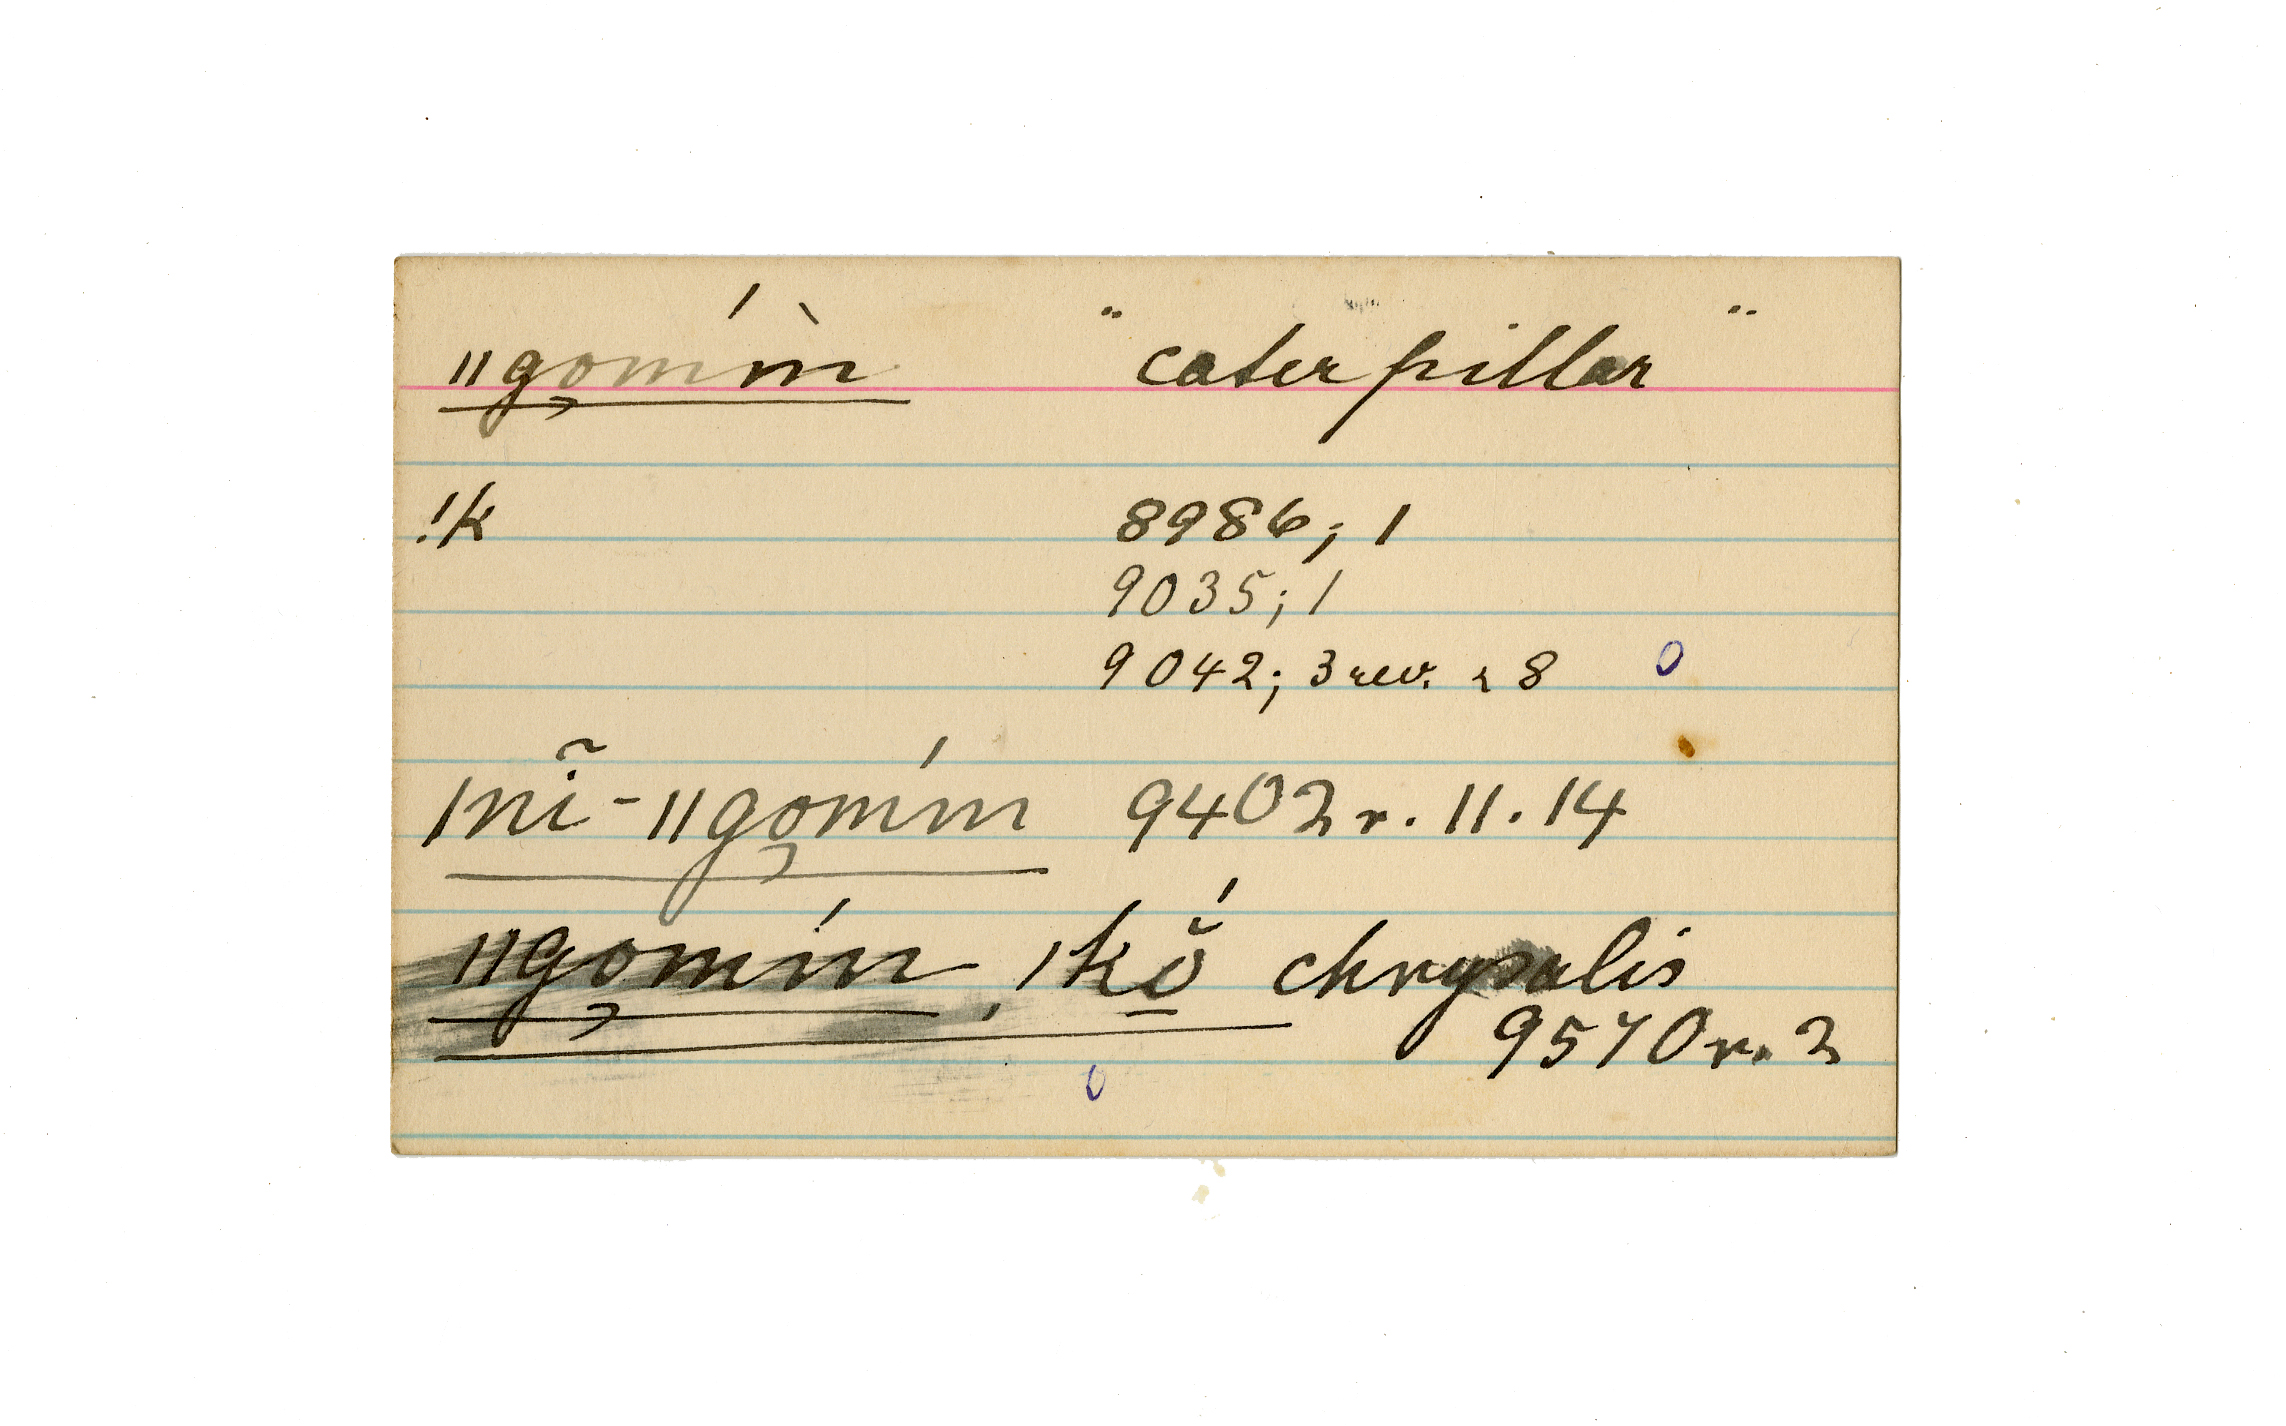 ǁgo̜míǹ "caterpillar"
!k 8986; 1
9035; 1
9042; 3 rev. & 8 0
ǀnĩ-ǁgo̜mín 9402 r. 11. 14
ǁgo̜mín, ǀkŏ̱́ chrysalis
9570 r. 2
0